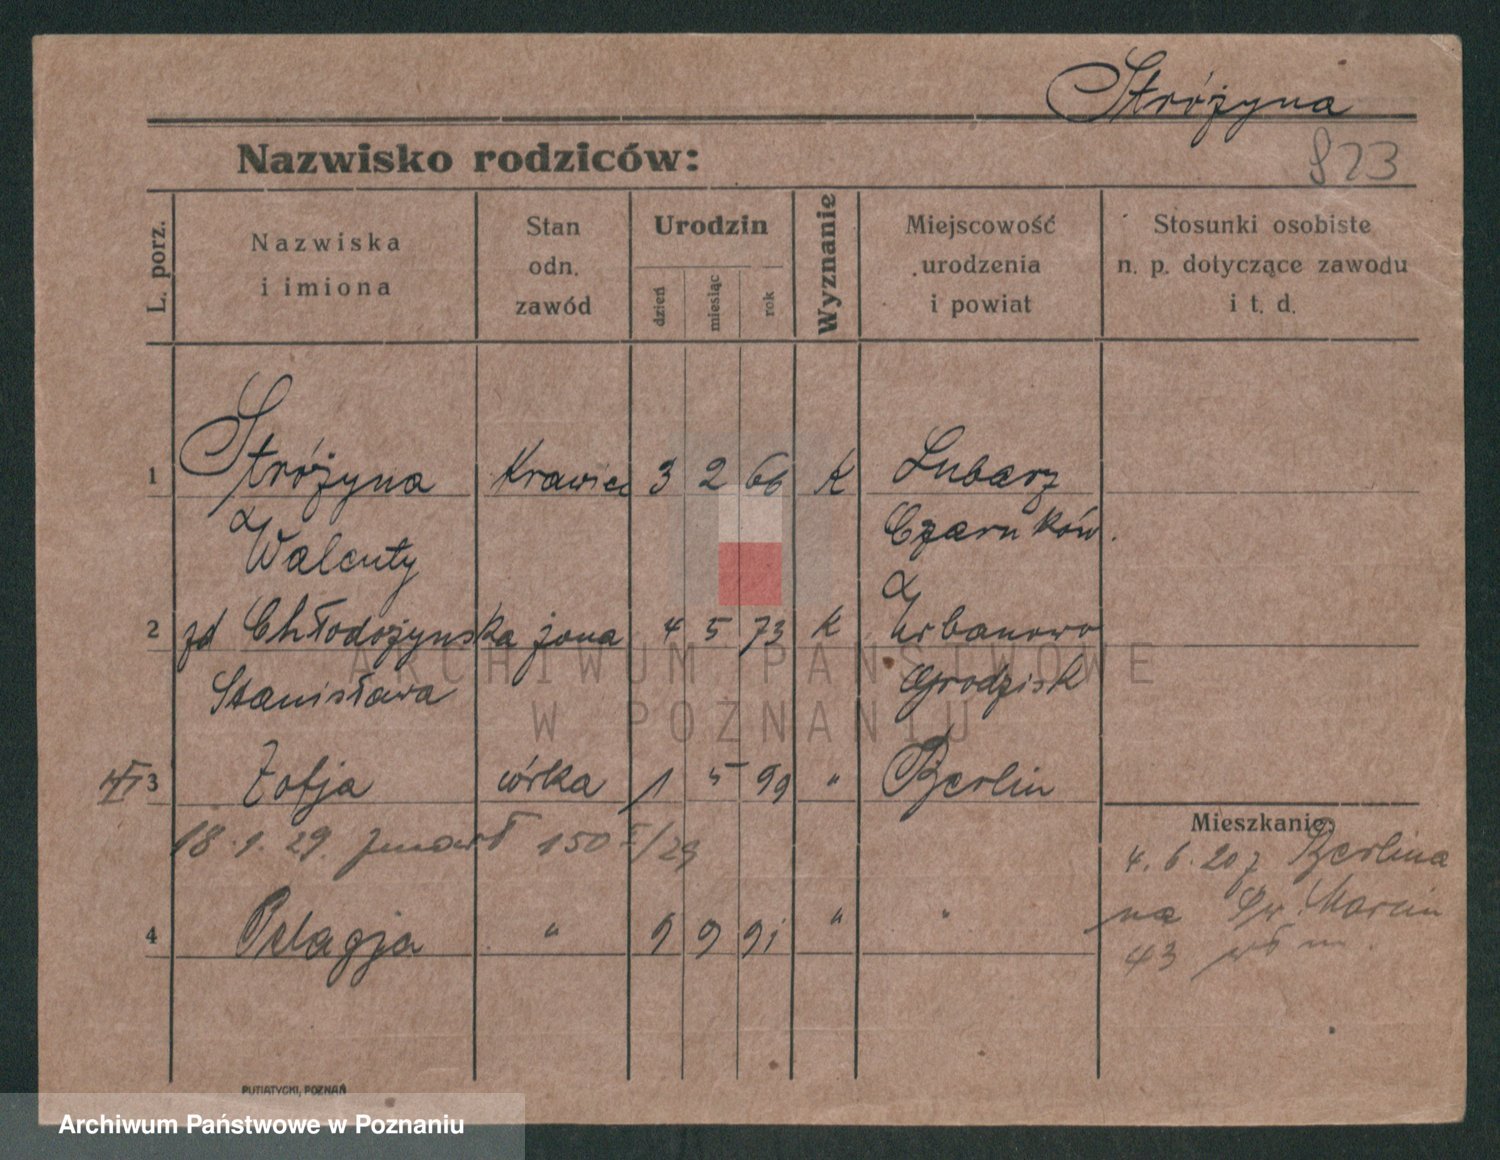 Stróżyna
Nazwisko rodziców:
823
L. porz.
Nazwiska
i imiona
Stan
odn.
zawód
Urodzin
dzień
miesiąc
rok
Wyznanie
Miejscowość
urodzenia
i powiat
Stosunki osobiste
n. p. dotyczące zawodu
i t. d.
1 Stróżyna Krawiec 3 2 66 K Lubarz
Walenty Czarnków.
2 zd Chłodożynska żona 4 5 73 K Urbanowo
Stanisława Grodzisk
3 Zofja córka 1 5 99 " Berlin
18.1.29. zmarł 150 I/29
Mieszkanie:
4.6.20 z Berlina
na Św. Marcin
43
4 Pelagja " 9 9 91 " "
PUTIATYCKI, POZNAŃ
ARCHIWUM PAŃSTWOWE
W POZNANIU
Archiwum Państwowe w Poznaniu